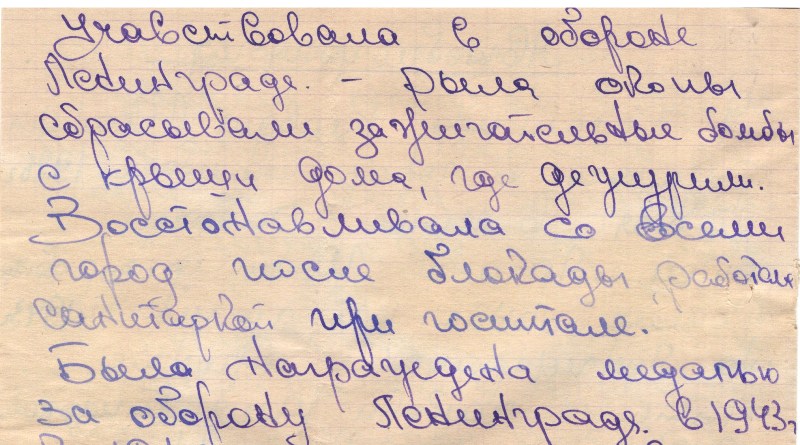 Учавствовала в обороне
Ленинграде. - рыла окопы
сбрасывали зажигательные бомбы
с крыши дома, где дежурили.
Восстонавливала со всеми
город после блокады, работала
санитаркой при госпитале.
Была награждена медалью
за оборону Ленинграде. в 1943г